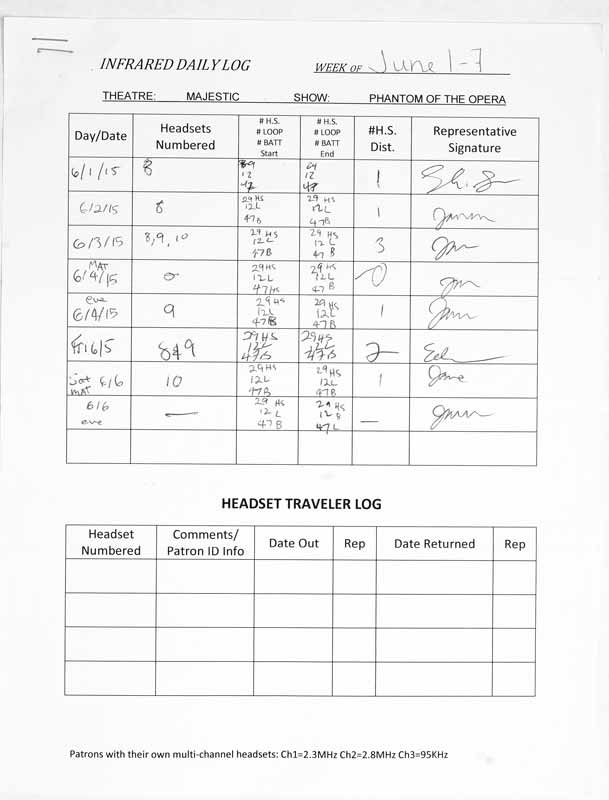 INFRARED DAILY LOG WEEK OF June 1-7
THEATRE: MAJESTIC SHOW: PHANTOM OF THE OPERA
Day/Date Headsets Numbered # H.S. # LOOP # BATT Start # H.S. # LOOP # BATT End #H.S. Dist. Representative Signature
6/1/15 8 12 12 1
6/2/15 8 29 HS 12L 47B 29 HS 12L 47B 1
6/3/15 8, 9, 10 29 HS 12L 47B 29 HS 12L 47B 3
MAT 6/4/15 0 29HS 12L 47HS 29HS 12L 47 B 0
eve 6/4/15 9 29HS 12L 47B 29HS 12L 47B 1
8&9 29HS 12L 47B 29HS 12L 47B 2
Sat 6/6 MAT 10 29HS 12L 47B 29HS 12L 47B 1
6/6 eve — 29 HS 12 L 47 B 29 HS 12 B 47L —
HEADSET TRAVELER LOG
Headset Numbered Comments/ Patron ID Info Date Out Rep Date Returned Rep
Patrons with their own multi-channel headsets: Ch1=2.3MHz Ch2=2.8MHz Ch3=95KHz